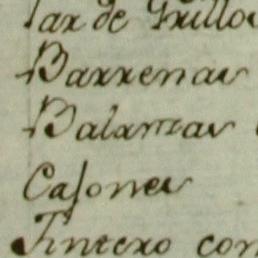 Par de Grillos
Barrenas
Balanzas
Cajones
Tintero con